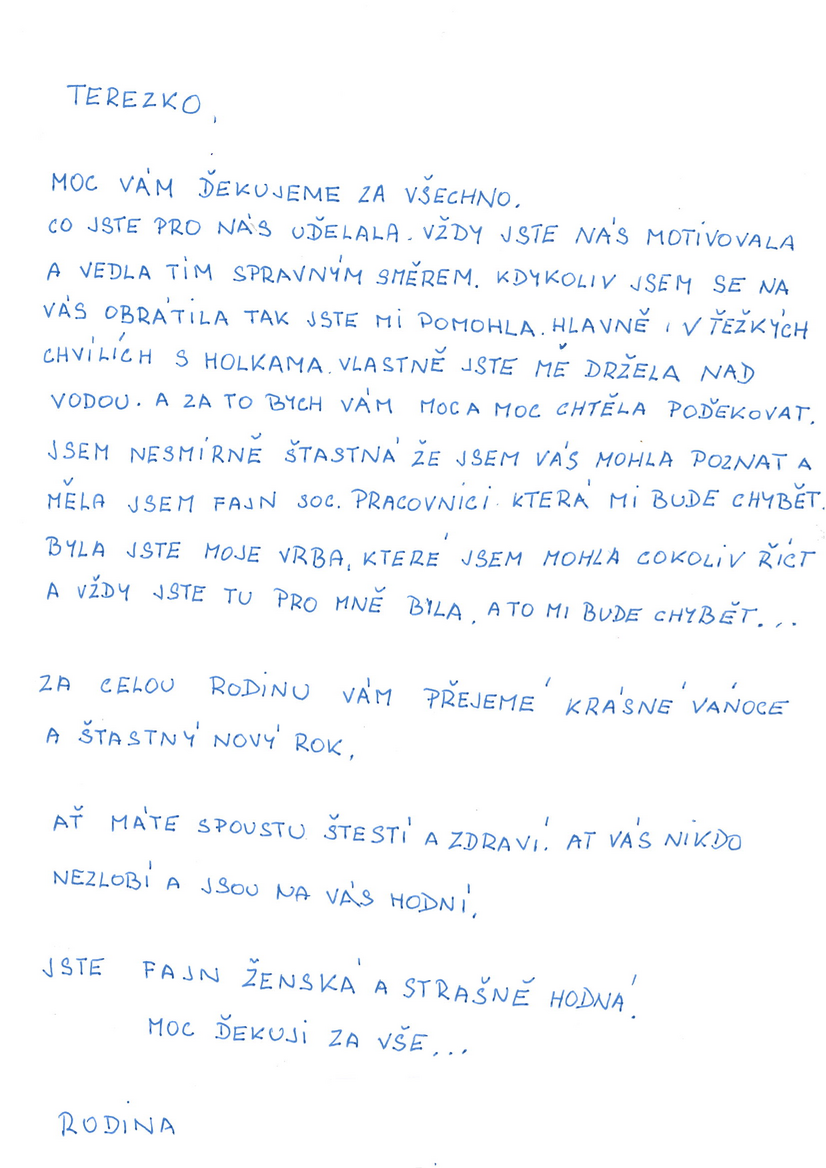 TEREZKO,
MOC VÁM ĎEKUJEME ZA VŠECHNO.
CO JSTE PRO NÁS UĎELALA. VŽDY JSTE NÁS MOTIVOVALA
A VEDLA TÍM SPRAVNÝM SMĚREM. KDYKOLIV JSEM SE NA
VÁS OBRÁTILA TAK JSTE MI POMOHLA. HLAVNĚ I V ŤEŽKÝCH
CHVÍLÍCH S HOLKAMA. VLASTNĚ JSTE MĚ DRŽELA NAD
VODOU. A ZA TO BYCH VÁM MOC A MOC CHTĚLA POĎEKOVAT.
JSEM NESMÍRNĚ ŠTASTNÁ ŽE JSEM VÁS MOHLA POZNAT A
MĚLA JSEM FAJN SOC. PRACOVNICI. KTERÁ MI BUDE CHYBĚT.
BYLA JSTE MOJE VRBA, KTERÉ JSEM MOHLA COKOLIV ŘÍCT
A VŽDY JSTE TU PRO MNĚ BYLA, A TO MI BUDE CHYBĚT...
ZA CELOU RODINU VÁM PŘEJEMÉ KRÁSNÉ VÁNOCE
A ŠTASTNÝ NOVÝ ROK,
AŤ MÁTE SPOUSTU ŠTESTÍ A ZDRAVÍ. AT VÁS NIKDO
NEZLOBÍ A JSOU NA VÁS HODNÍ,
JSTE FAJN ŽENSKÁ A STRAŠNĚ HODNÁ.
MOC ĎEKUJI ZA VŠE...
RODINA